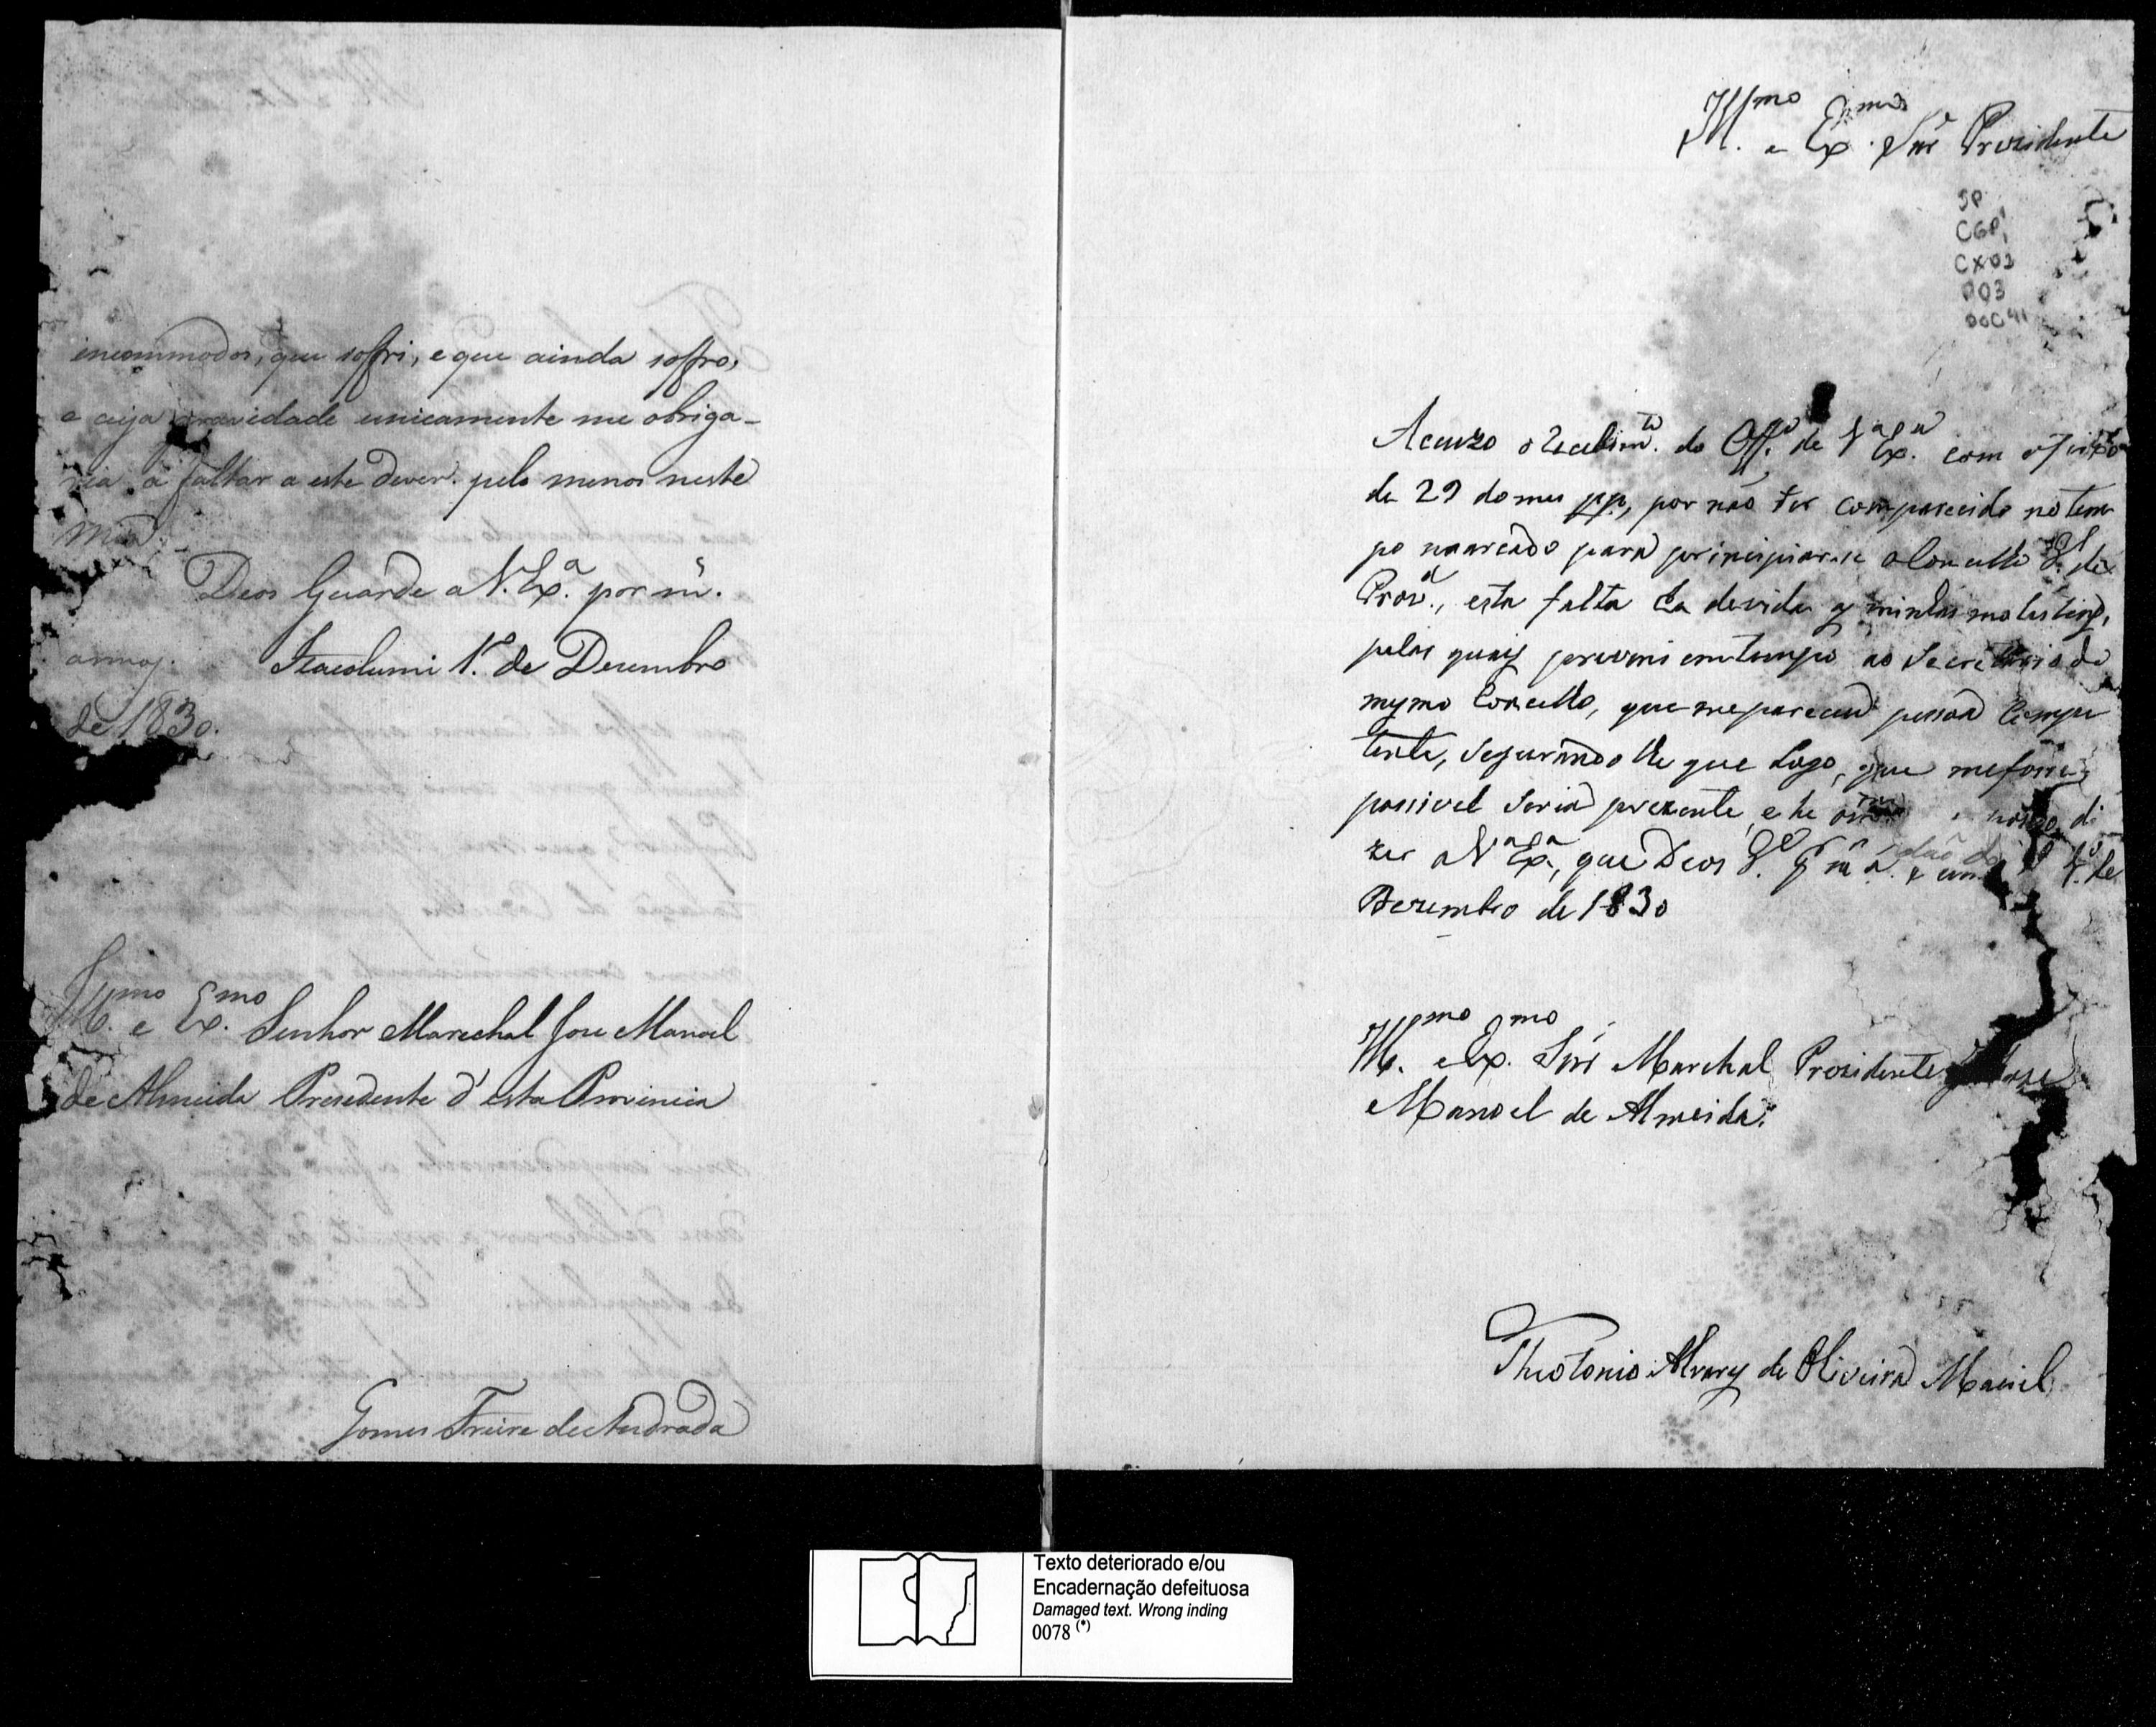 incommodos, que soffri, e que ainda soffro,
e cuja gravidade unicamente me obriga-
ria a faltar a este dever. pelo menos neste
Deos Guarde a V. Ex.ª por m.s
annos. Itacolumi 1.º de Dezembro
de 1830.
Ill.mo e Ex.mo Senhor Marechal Jose Manoel
de Almeida Presedente d'esta Provincia
Gomes Freire de Andrada
Ill.mo e Ex.mo Snr Prezidente
SP
CGP1
CX01
P03
DOC 41
Acuzo o recebim.to do Off.º de V.ª Ex.ª com
de 29 do mes pp, por não ter comparecido no tem
po marcado para principiar-se o Concelho G.l de
Prov.ª, esta falta he devida as minhas molestias,
pelas quais preveni em tempo ao Secretario do
mesmo Concelho, que me pareceu pessoa Compe
tente, segurando lhe que logo, que me fosse
possivel seria prezente, e he di
zer a V.ª Ex.ª, que Deos G.e
Dezembro de 1830
Ill.mo e Ex.mo Snr Marchal Prezidente Joze
Manoel de Almeida.
Theotonio Alvares de Oliveira Maciel
Texto deteriorado e/ou
Encadernação defeituosa
Damaged text. Wrong inding
0078 (*)